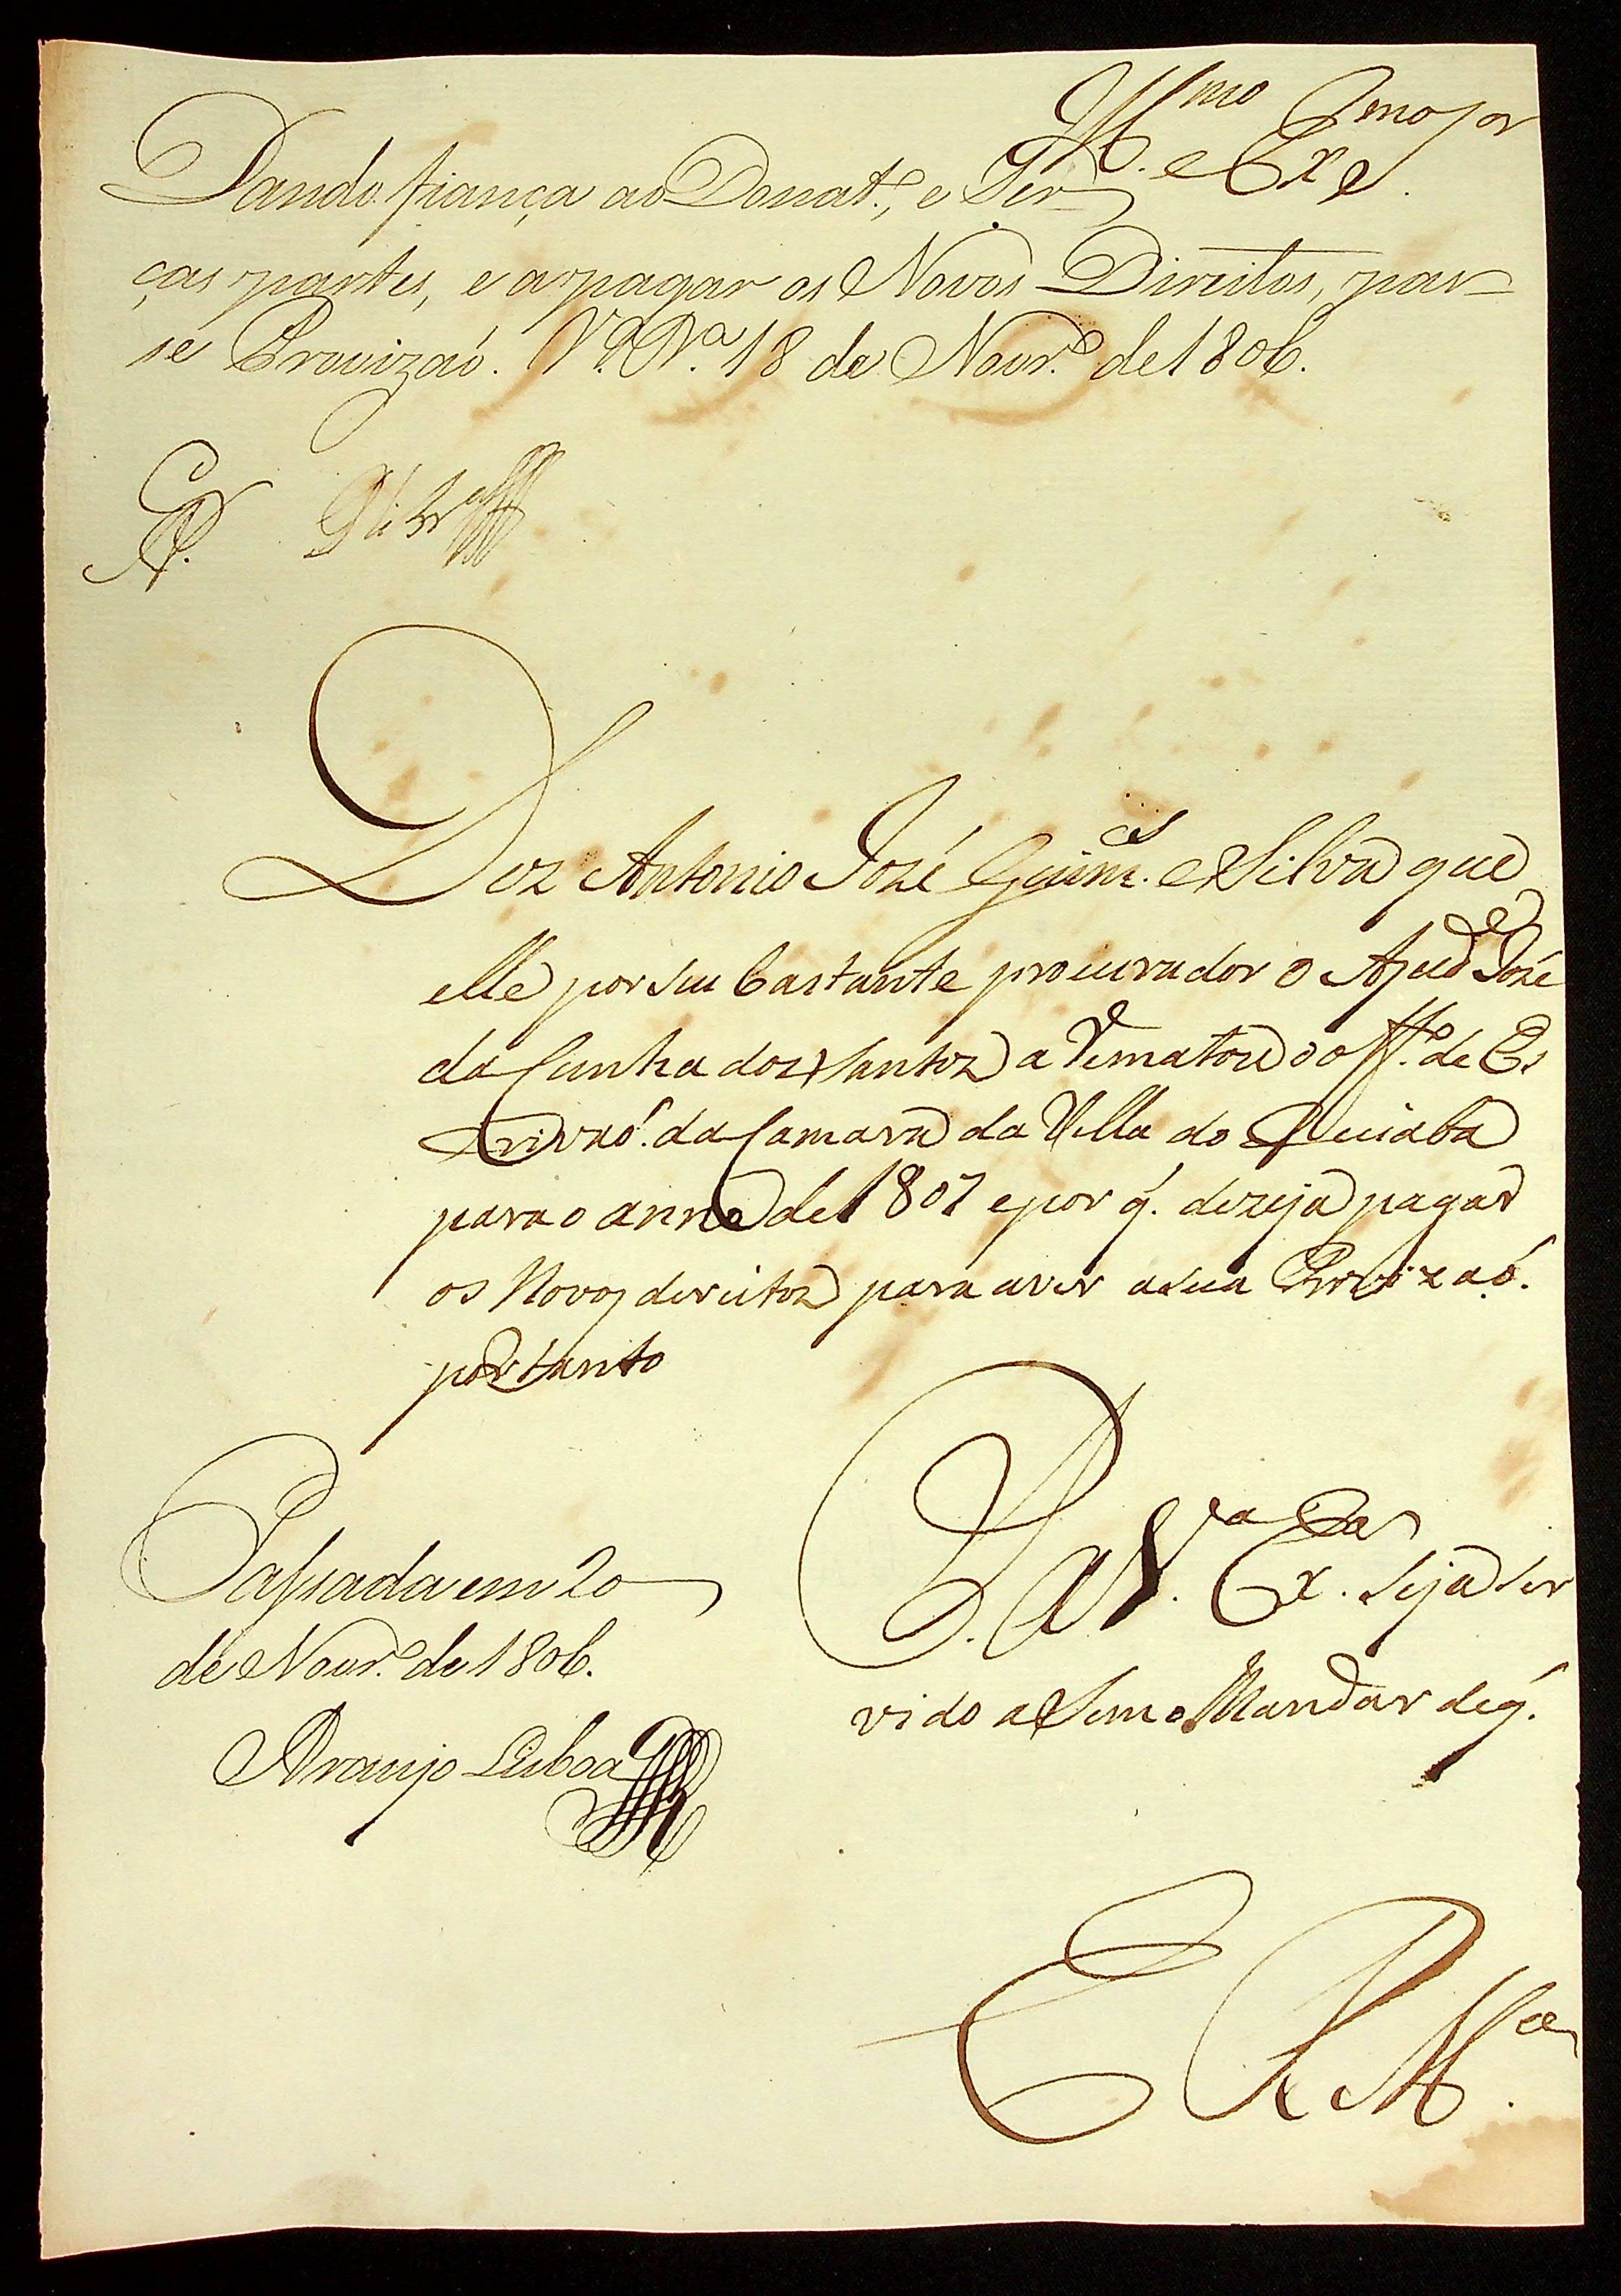 Illmo. e Exmo Sor.
Dando fiança ao Donat.º, e Ter-
ças partes, e a pagar os Novos Direitos, pas-
se Provizaó. V.ª B.ª 18 de Novr.º de 1806.
Diz Antonio Jozé Guim.es e Silva que
elle por seu bastante procurador o Ajud.e Jozé
da Cunha dos Santoz a Rematou o off.º de Es
crivaó. da Camara da Villa do Cuiaba
para o anno de 1807 e por q́. dezeja pagar
os Novoz direitoz para aver a sua Provizaó.
portanto
P. a V.ª Ex.ª seja ser
vido a Sim o Mandar de q́.
Passada em 20
de Novr.º de 1806.
Araujo Lisboa
E R M.ce